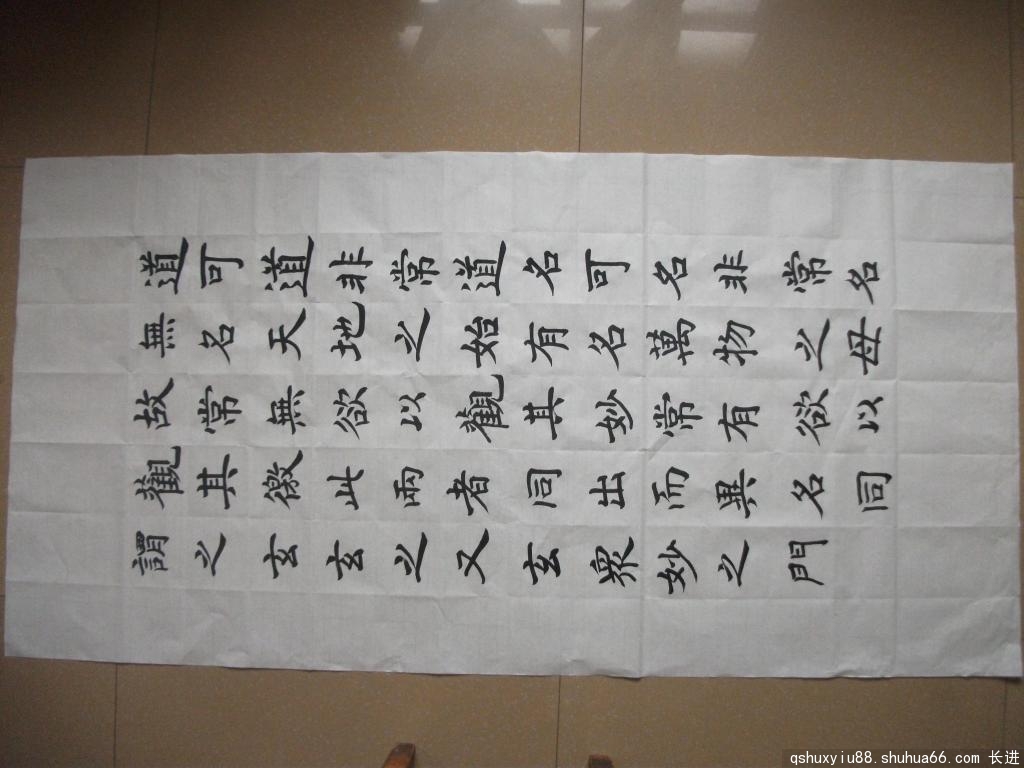 道可道非常道名可名非常名
無名天地之始有名萬物之母
故常無欲以觀其妙常有欲以
觀其徼此兩者同出而異名同
謂之玄玄之又玄眾妙之門
qshuxyiu88.shuhua66.com 长进